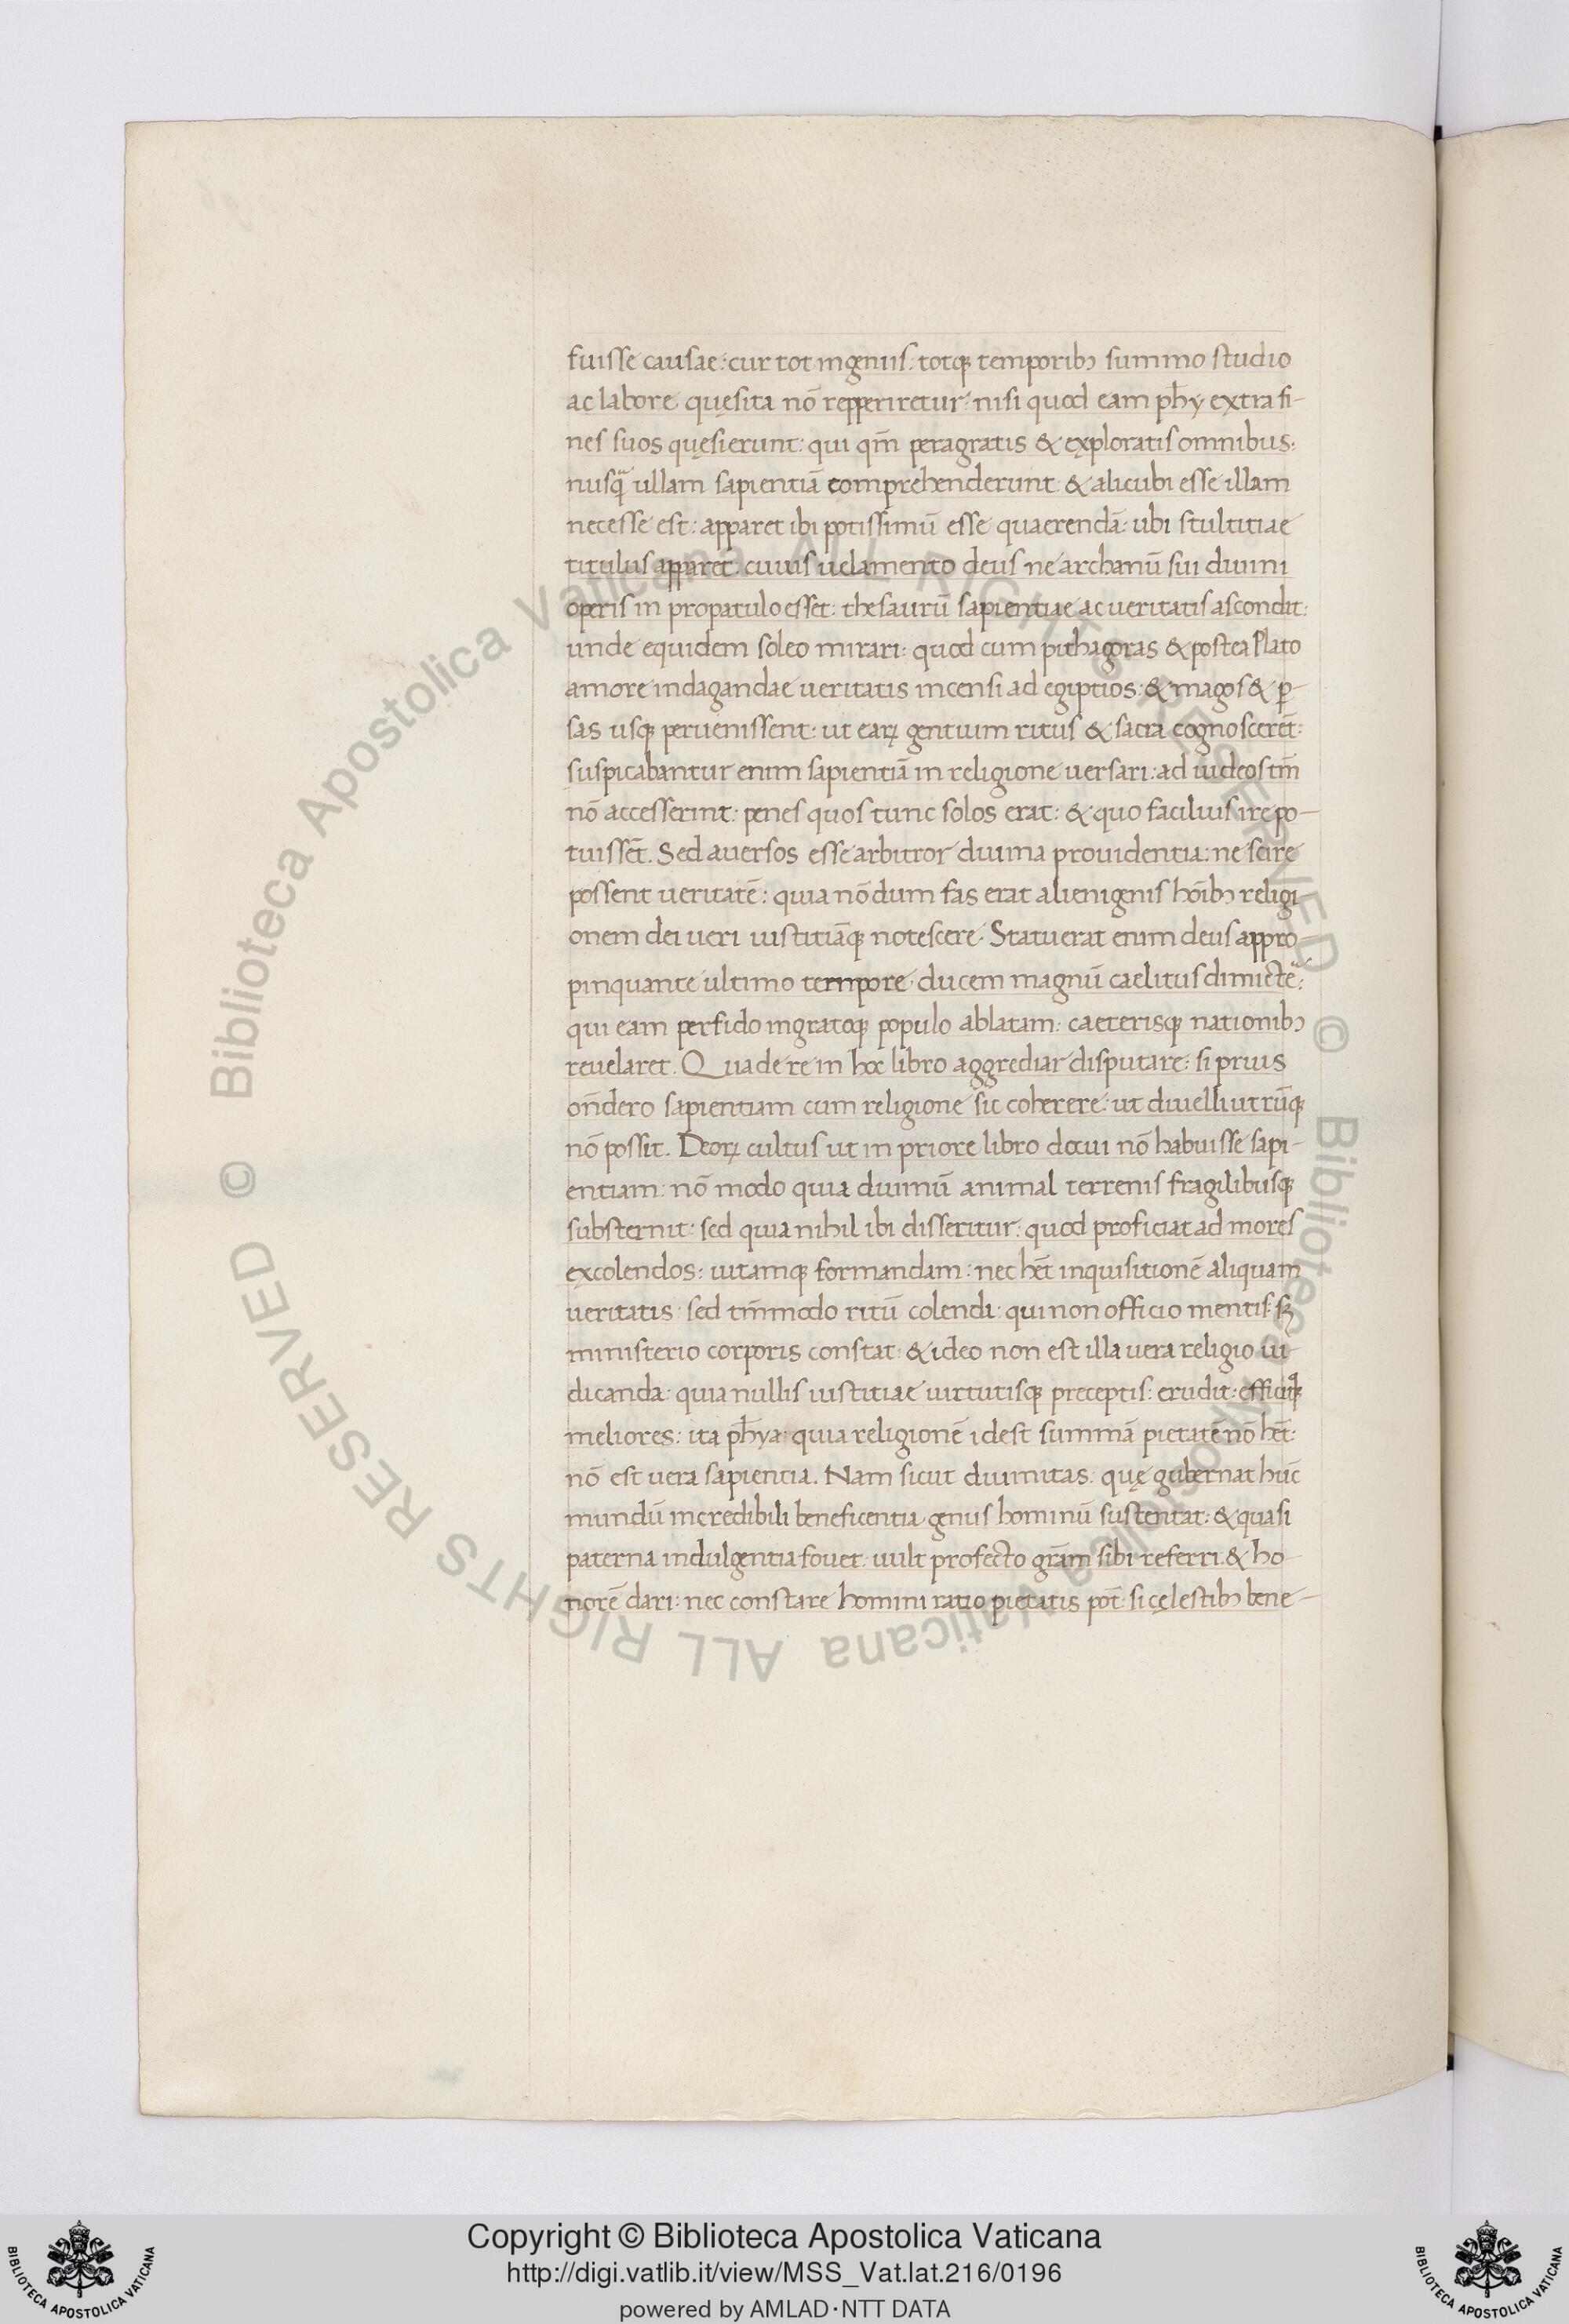 fuisse causae: cur tot ingeniis: totqꝫ temporibꝫ summo studio
ac labore quęsita nō repperiretur: nisi quod eam ph̄y extra fi-
nes suos quęsierunt: qui qm̄ peragratis & exploratis omnibus:
nusq̃ ullam sapientiā comprehenderunt: & alicubi esse illam
necesse est: apparet ibi potissimū esse quaerendā: ubi stultitiae
titulus apparet: cuius uelamento deus ne archanū sui diuini
operis in propatulo esset: thesaurū sapientiae ac ueritatis ascondit:
unde equidem soleo mirari: quod cum pithagoras & postea Plato
amore indagandae ueritatis incensi ad egiptios: & magos & ꝑ-
sas usqꝫ peruenissent: ut eaꝝ gentium ritus & sacra cognoscerēt:
suspicabantur enim sapientiā in religione uersari: ad iudeos tm̄
nō accesserint: penes quos tunc solos erat: & quo facilius ire po-
tuissēt. Sed auersos esse arbitror diuina prouidentia: ne scire
possent ueritatē: quia nōdum fas erat alienigenis hōibꝫ religi
onem dei ueri iustitiāqꝫ notescere. Statuerat enim deus appro
pinquante ultimo tempore ducem magnū caelitus dimictē:
qui eam perfido ingratoqꝫ populo ablatam: caeterisqꝫ nationibꝫ
reuelaret. Qua de re in hoc libro aggrediar disputare: si prius
on̄dero sapientiam cum religione sic coherere: ut diuelli utrūqꝫ
nō possit. Deoꝝ cultus ut in priore libro docui nō habuisse sapi-
entiam: nō modo quia diuinū animal terrenis fragilibusqꝫ
substernit: sed quia nihil ibi disseritur: quod proficiat ad mores
excolendos: uitamqꝫ formandam: nec hēt inquisitionē aliquam
ueritatis: sed tm̄modo ritū colendi: qui non officio mentis: sꝫ
ministerio corporis constat: & ideo non est illa uera religio iu-
dicanda: quia nullis iustitiae uirtutisqꝫ preceptis: erudit: efficitqꝫ
meliores: ita ph̄ya: quia religionē idest summā pietatē nō hēt:
nō est uera sapientia. Nam sicut diuinitas: quę gubernat hūc
mundū incredibili beneficentia genus hominū sustentat: & quasi
paterna indulgentia fouet: uult profecto grām sibi referri: & ho-
norē dari: nec constare homini ratio pietatis pōt: si cęlestibꝫ bene-
© Biblioteca Apostolica Vaticana ALL RIGHTS RESERVED
© Biblioteca Apostolica Vaticana ALL RIGHTS RESERVED
Copyright © Biblioteca Apostolica Vaticana
http://digi.vatlib.it/view/MSS_Vat.lat.216/0196
powered by AMLAD·NTT DATA
BIBLIOTECA APOSTOLICA VATICANA
BIBLIOTECA APOSTOLICA VATICANA